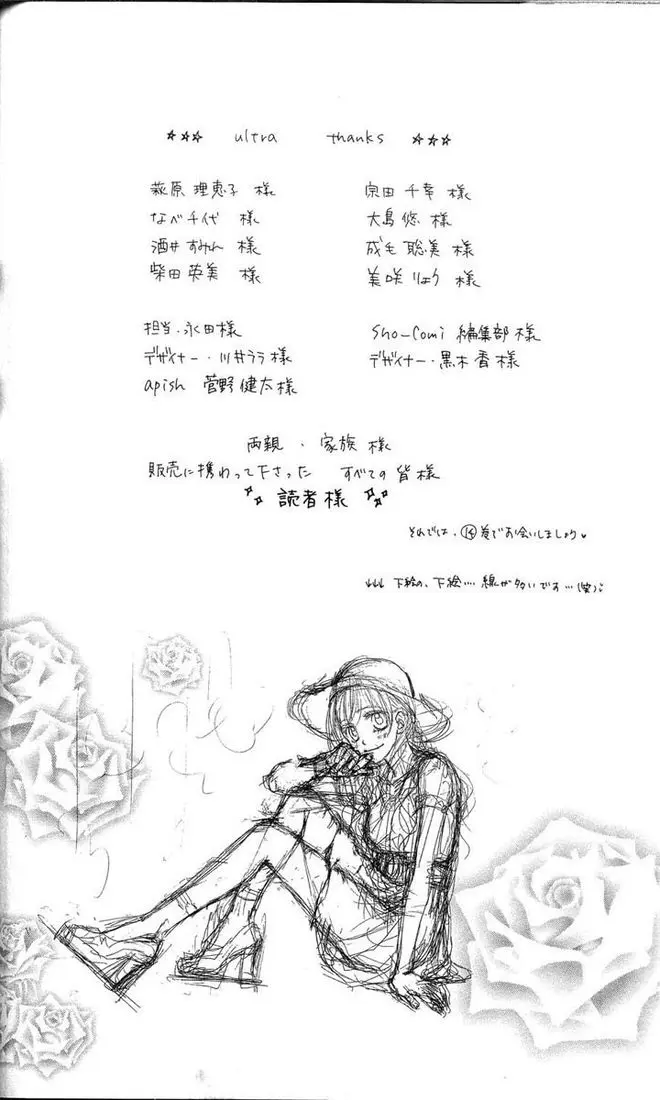 ☆☆☆ ultra thanks ☆☆☆
萩原 理恵子 様
なべ千代 様
酒井 すみれ 様
柴田 英美 様
宗田 千幸 様
大島 悠 様
成毛 聡美 様
美咲 りょう 様
担当・永田様
デザイナー・川井ララ様
apish 菅野 健太様
Sho-Comi 編集部様
デザイナー・黒木香様
両親・家族様
販売に携わって下さった すべての皆様
読者様
それでは、⑭巻でお会いしましょう♥
↓↓↓ 下絵の、下絵…。線が多いです…(笑)。